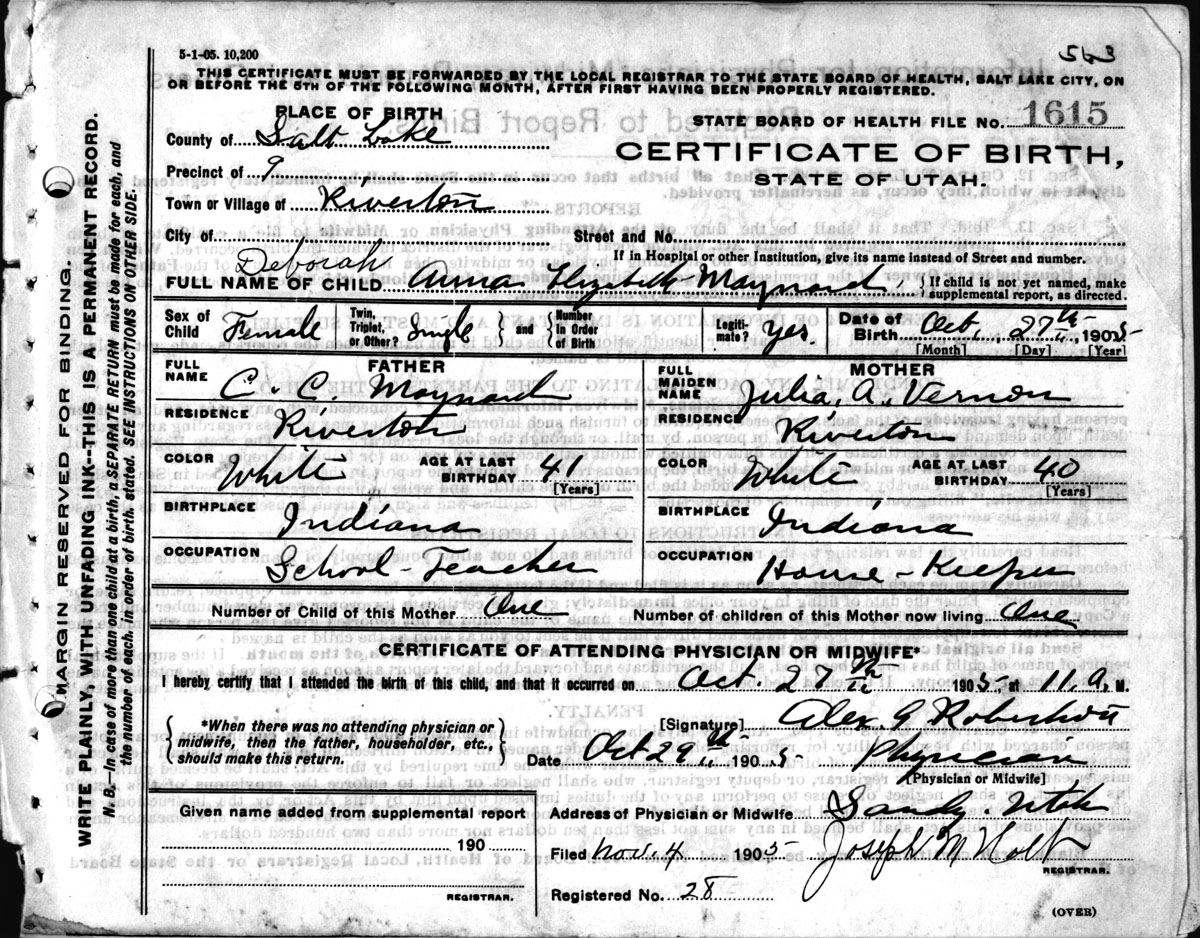 5-1-05. 10,200
563
THIS CERTIFICATE MUST BE FORWARDED BY THE LOCAL REGISTRAR TO THE STATE BOARD OF HEALTH, SALT LAKE CITY, ON
OR BEFORE THE 5TH OF THE FOLLOWING MONTH, AFTER FIRST HAVING BEEN PROPERLY REGISTERED.
PLACE OF BIRTH
STATE BOARD OF HEALTH FILE No. 1615
County of Salt Lake
CERTIFICATE OF BIRTH,
STATE OF UTAH.
Precinct of 9
Town or Village of Riverton
City of
Street and No.
If in Hospital or other Institution, give its name instead of Street and number.
Deborah
FULL NAME OF CHILD Anna Elizabeth Maynard {If child is not yet named, make supplemental report, as directed.
Sex of Child Female Twin, Triplet, or Other? Single } and { Number in Order of Birth Legitimate? Yes. Date of Birth Oct, 27th 1905
[Month] [Day] [Year]
FATHER
MOTHER
FULL NAME C. C. Maynard
FULL MAIDEN NAME Julia, A. Vernon
RESIDENCE Riverton
RESIDENCE Riverton
COLOR White AGE AT LAST BIRTHDAY 41 [Years]
COLOR White AGE AT LAST BIRTHDAY 40 [Years]
BIRTHPLACE Indiana
BIRTHPLACE Indiana
OCCUPATION School-Teacher
OCCUPATION House-Keeper
Number of Child of this Mother One
Number of children of this Mother now living One
CERTIFICATE OF ATTENDING PHYSICIAN OR MIDWIFE*
I hereby certify that I attended the birth of this child, and that it occurred on Oct. 27th 1905, at 11.a, M.
{ *When there was no attending physician or midwife, then the father, householder, etc., should make this return. }
[Signature] Alex G Robertson
Date Oct 29th 1905 Physician
[Physician or Midwife]
Given name added from supplemental report
190
REGISTRAR.
Address of Physician or Midwife Sandy. Utah
Filed Nov. 4 1905 Joseph M Holt
REGISTRAR.
Registered No. 28
(OVER)
MARGIN RESERVED FOR BINDING.
WRITE PLAINLY, WITH UNFADING INK--THIS IS A PERMANENT RECORD.
N. B.--In case of more than one child at a birth, a SEPARATE RETURN must be made for each, and
the number of each, in order of birth, stated. SEE INSTRUCTIONS ON OTHER SIDE.